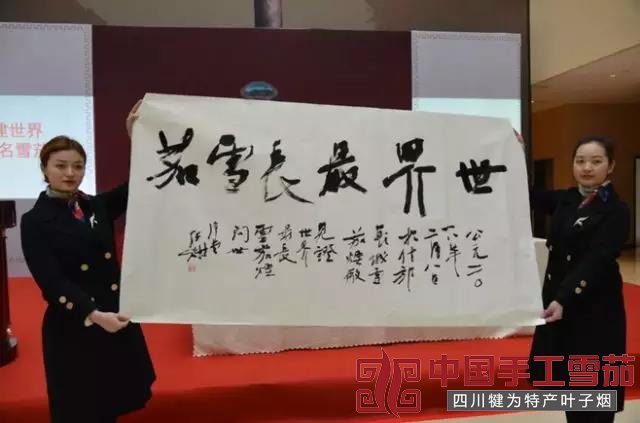 建世界
名雪茄
世界最長雪茄
公元二〇
二月八日
於什邡
長城雪
茄煙廠
見證
世界
最長
雪茄煙
問世
中国手工雪茄
四川犍为特产叶子烟